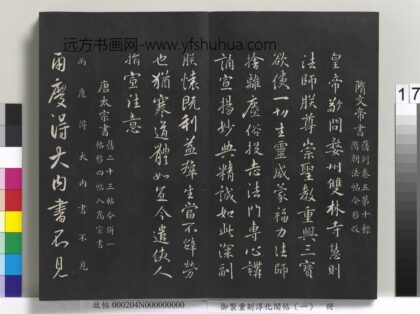 远方书画网-www.yfshuhua.com
隋文帝書
舊列卷五第十標
隋朝法帖今移改
皇帝敬問婺州雙林寺慧則
法師朕尊崇聖教重興三寶
欲使一切生靈咸蒙福力法師
捨離塵俗投志法門專心講
誦宣揚妙典精誠如此深副
朕懷既利益群生當不辭勞
也猶寒道體如宜今遣使人
指宣往意
唐太宗書
舊二十三帖今併一
帖移四帖入高宗書
兩度得大內書不見
兩度得大內書不見
故帖 000204N000000000
御製重刻淳化閣帖(一) 冊